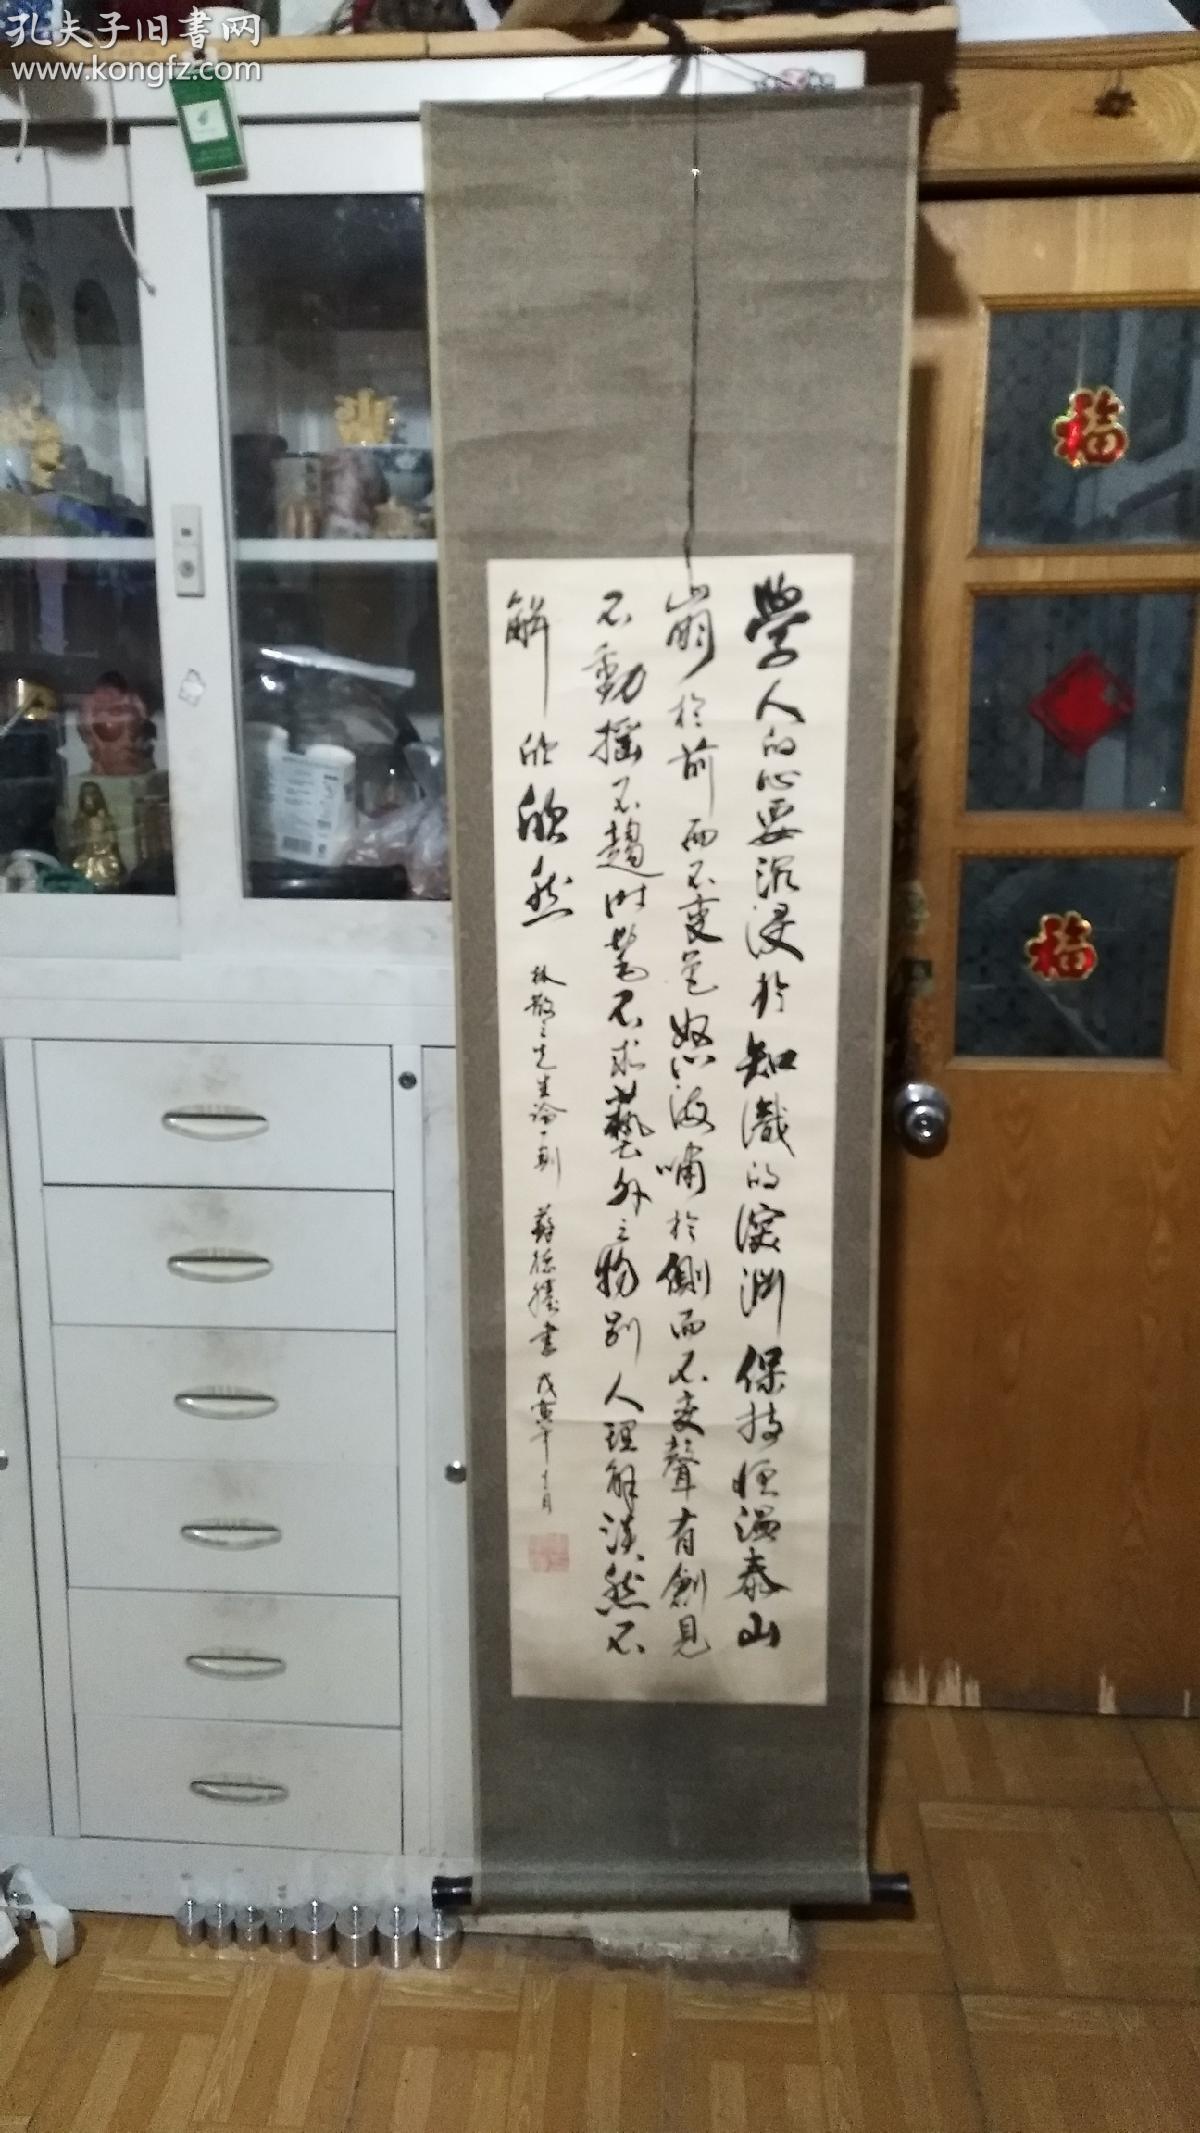 孔夫子旧書网
www.kongfz.com
學人的心要沉浸於知識的深渊保持恒温泰山
崩於前而不变色怒海嘯於側而不变聲有創見
不動摇不趨时髦不求藝外之物别人理解淡然不
解欣欣然
林散之先生論一則 蘇德勝書 戊寅年十月
福
福